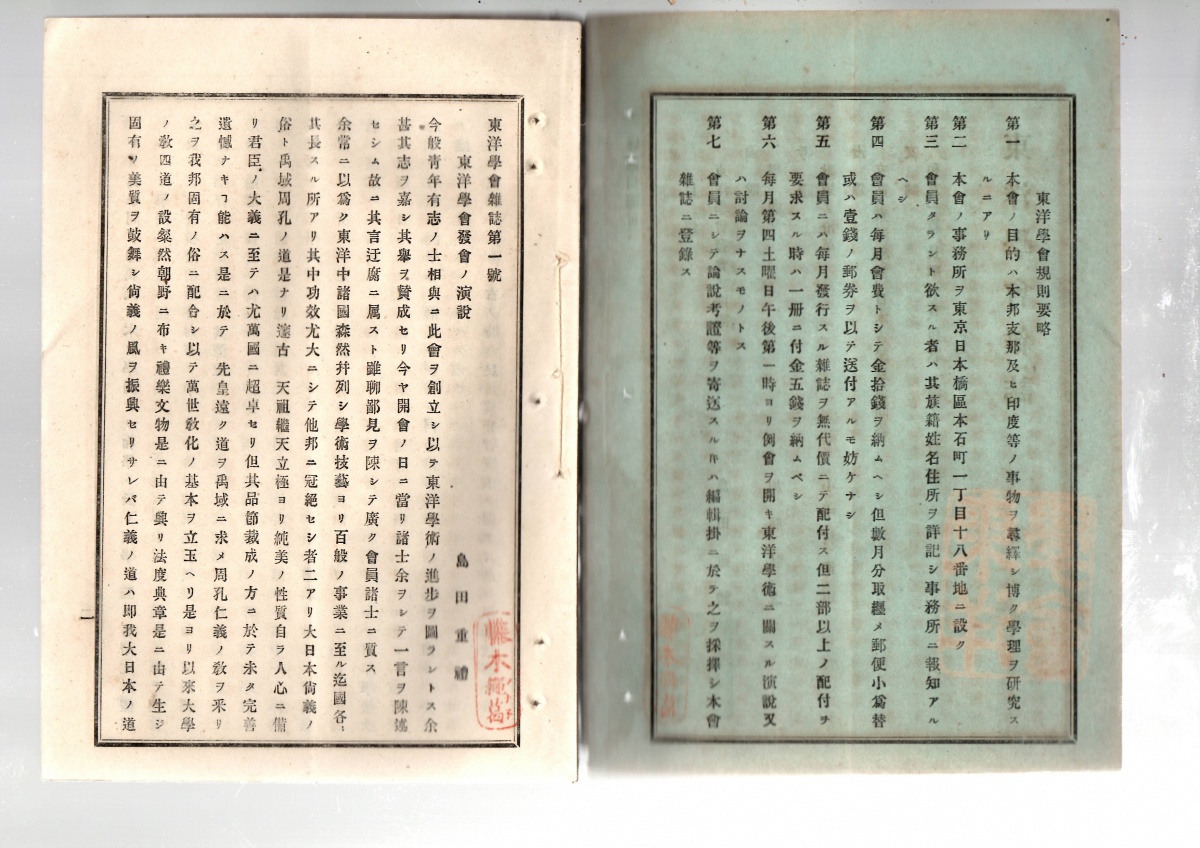 東洋學會規則要略
第一　本會ノ目的ハ本邦支那及ヒ印度等ノ事物ヲ尋繹シ博ク學理ヲ研究ス
ルニアリ
第二　本會ノ事務所ヲ東京日本橋區本石町一丁目十八番地ニ設ク
第三　會員タラント欲スル者ハ其族籍姓名住所ヲ詳記シ事務所ニ報知アル
ヘシ
第四　會員ハ每月會費トシテ金拾錢ヲ納ムヘシ但數月分取纒メ郵便小爲替
或ハ壹錢ノ郵券ヲ以テ送付アルモ妨ケナシ
第五　會員ニハ每月發行スル雜誌ヲ無代價ニテ配付ス但二部以上ノ配付ヲ
要求スル時ハ一册ニ付金五錢ヲ納ムベシ
第六　每月第四土曜日午後第一時ヨリ例會ヲ開キ東洋學術ニ關スル演說又
ハ討論ヲナスモノトス
第七　會員ニシテ論說考證等ヲ寄送スルヰハ編輯掛ニ於テ之ヲ採擇シ本會
雜誌ニ登錄ス
東洋學會雜誌第一號
東洋學會發會ノ演說
島田重禮
今般靑年有志ノ士相與ニ此會ヲ創立シ以テ東洋學術ノ進步ヲ圖ラントス余
甚其志ヲ嘉シ其擧ヲ贊成セリ今ヤ開會ノ日ニ當リ諸士余ヲシテ一言ヲ陳述
セシム故ニ其言迂腐ニ属スト雖聊鄙見ヲ陳シテ廣ク會員諸士ニ質ス
余常ニ以爲ク東洋中諸國森然幷列シ學術技藝ヨリ百般ノ事業ニ至ル迄國各〻
其長スル所アリ其中功效尤大ニシテ他邦ニ冠絕セシ者二アリ大日本尙義ノ
俗ト禹域周孔ノ道是ナリ邃古　天祖繼天立極ヨリ純美ノ性質自ラ人心ニ備
リ君臣ノ大義ニ至テハ尤萬國ニ超卓セリ但其品節裁成ノ方ニ於テ未タ完善
遺憾ナキヿ能ハス是ニ於テ　先皇遠ク道ヲ禹域ニ求メ周孔仁義ノ敎ヲ釆リ
之ヲ我邦固有ノ俗ニ配合シ以テ萬世敎化ノ基本ヲ立玉ヘリ是ヨリ以來大學
ノ敎四道ノ設粲然朝野ニ布キ禮樂文物是ニ由テ興リ法度典章是ニ由テ生シ
固有ノ美質ヲ鼓舞シ尙義ノ風ヲ振興セリサレバ仁義ノ道ハ卽我大日本ノ道
一